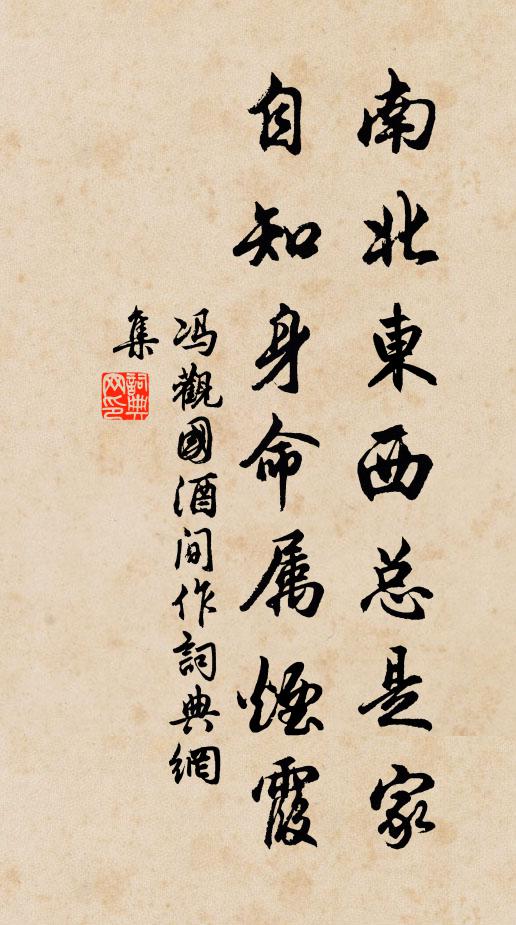 南北東西总是家
自知身命属煙霞
冯觀國酒间作詞典網
集
詞典
网印